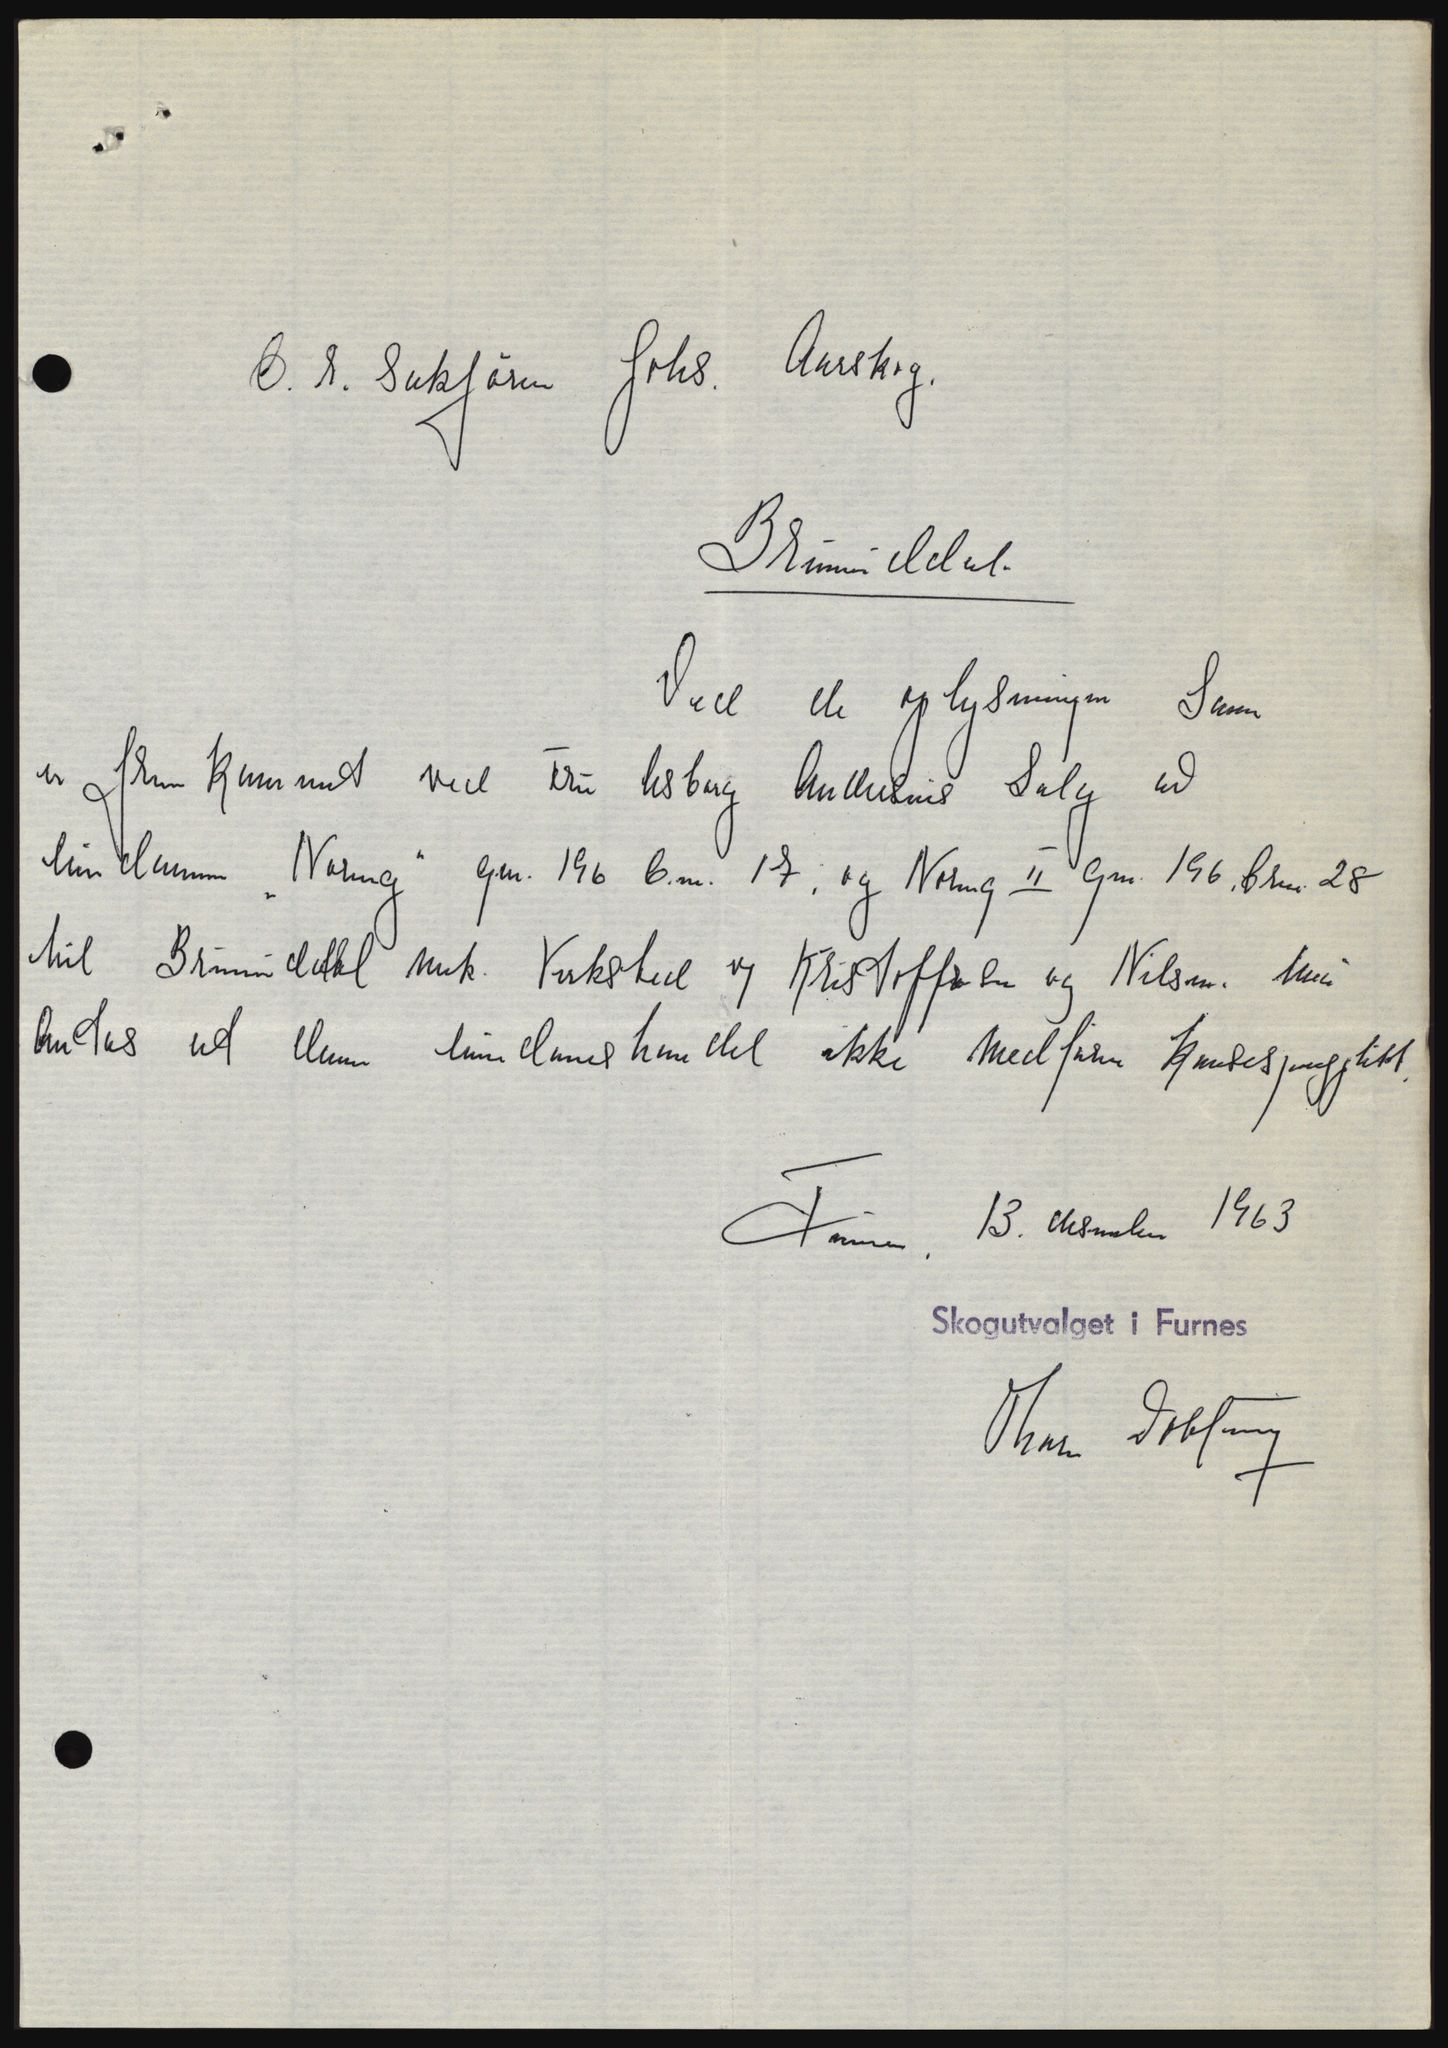 O. r. Sakfører Johs. Aarskog.
Brumunddal.
Ved de oplysninger som
er fremkommet ved Fru Asborg Andersens Salg av
eiendommen „Noreng" gnr. 196 b.nr. 17, og Noreng II gnr. 196, brnr. 28
til Brumunddal mek. Verksted og Kristoffersen og Nilsen. må
antas at denne eiendomshandel ikke medfører konsesjonsplikt.
Furnes, 13. desember 1963
Skogutvalget i Furnes
Thor